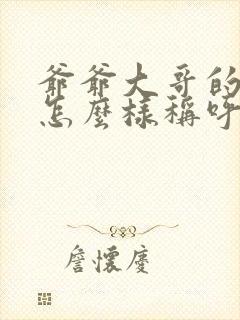 爺爺大哥的
怎麼樣稱呼
詹懷慶